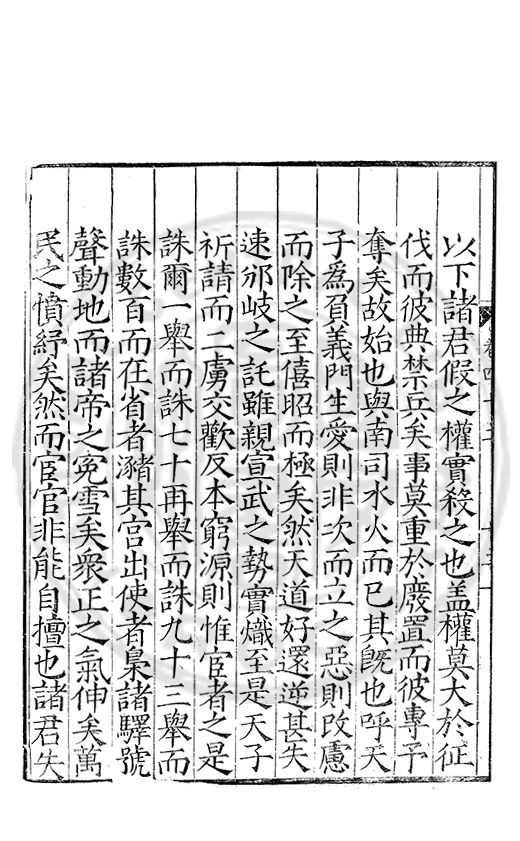 以下諸君假之權實殺之也盖權莫大於征
伐而彼典禁兵矣事莫重於廢置而彼專予
奪矣故始也與南司水火而已其旣也呼天
子爲負義門生愛則非次而立之惡則改慮
而除之至僖昭而極矣然天道好還逆甚失
速邠岐之託雖親宣武之勢實熾至是天子
祈請而二虜交歡反本窮源則惟宦者之是
誅爾一舉而誅七十再舉而誅九十三舉而
誅數百而在省者瀦其宫出使者梟諸驛號
聲動地而諸帝之寃雪矣衆正之氣伸矣萬
民之憤紓矣然而宦官非能自擅也諸君失